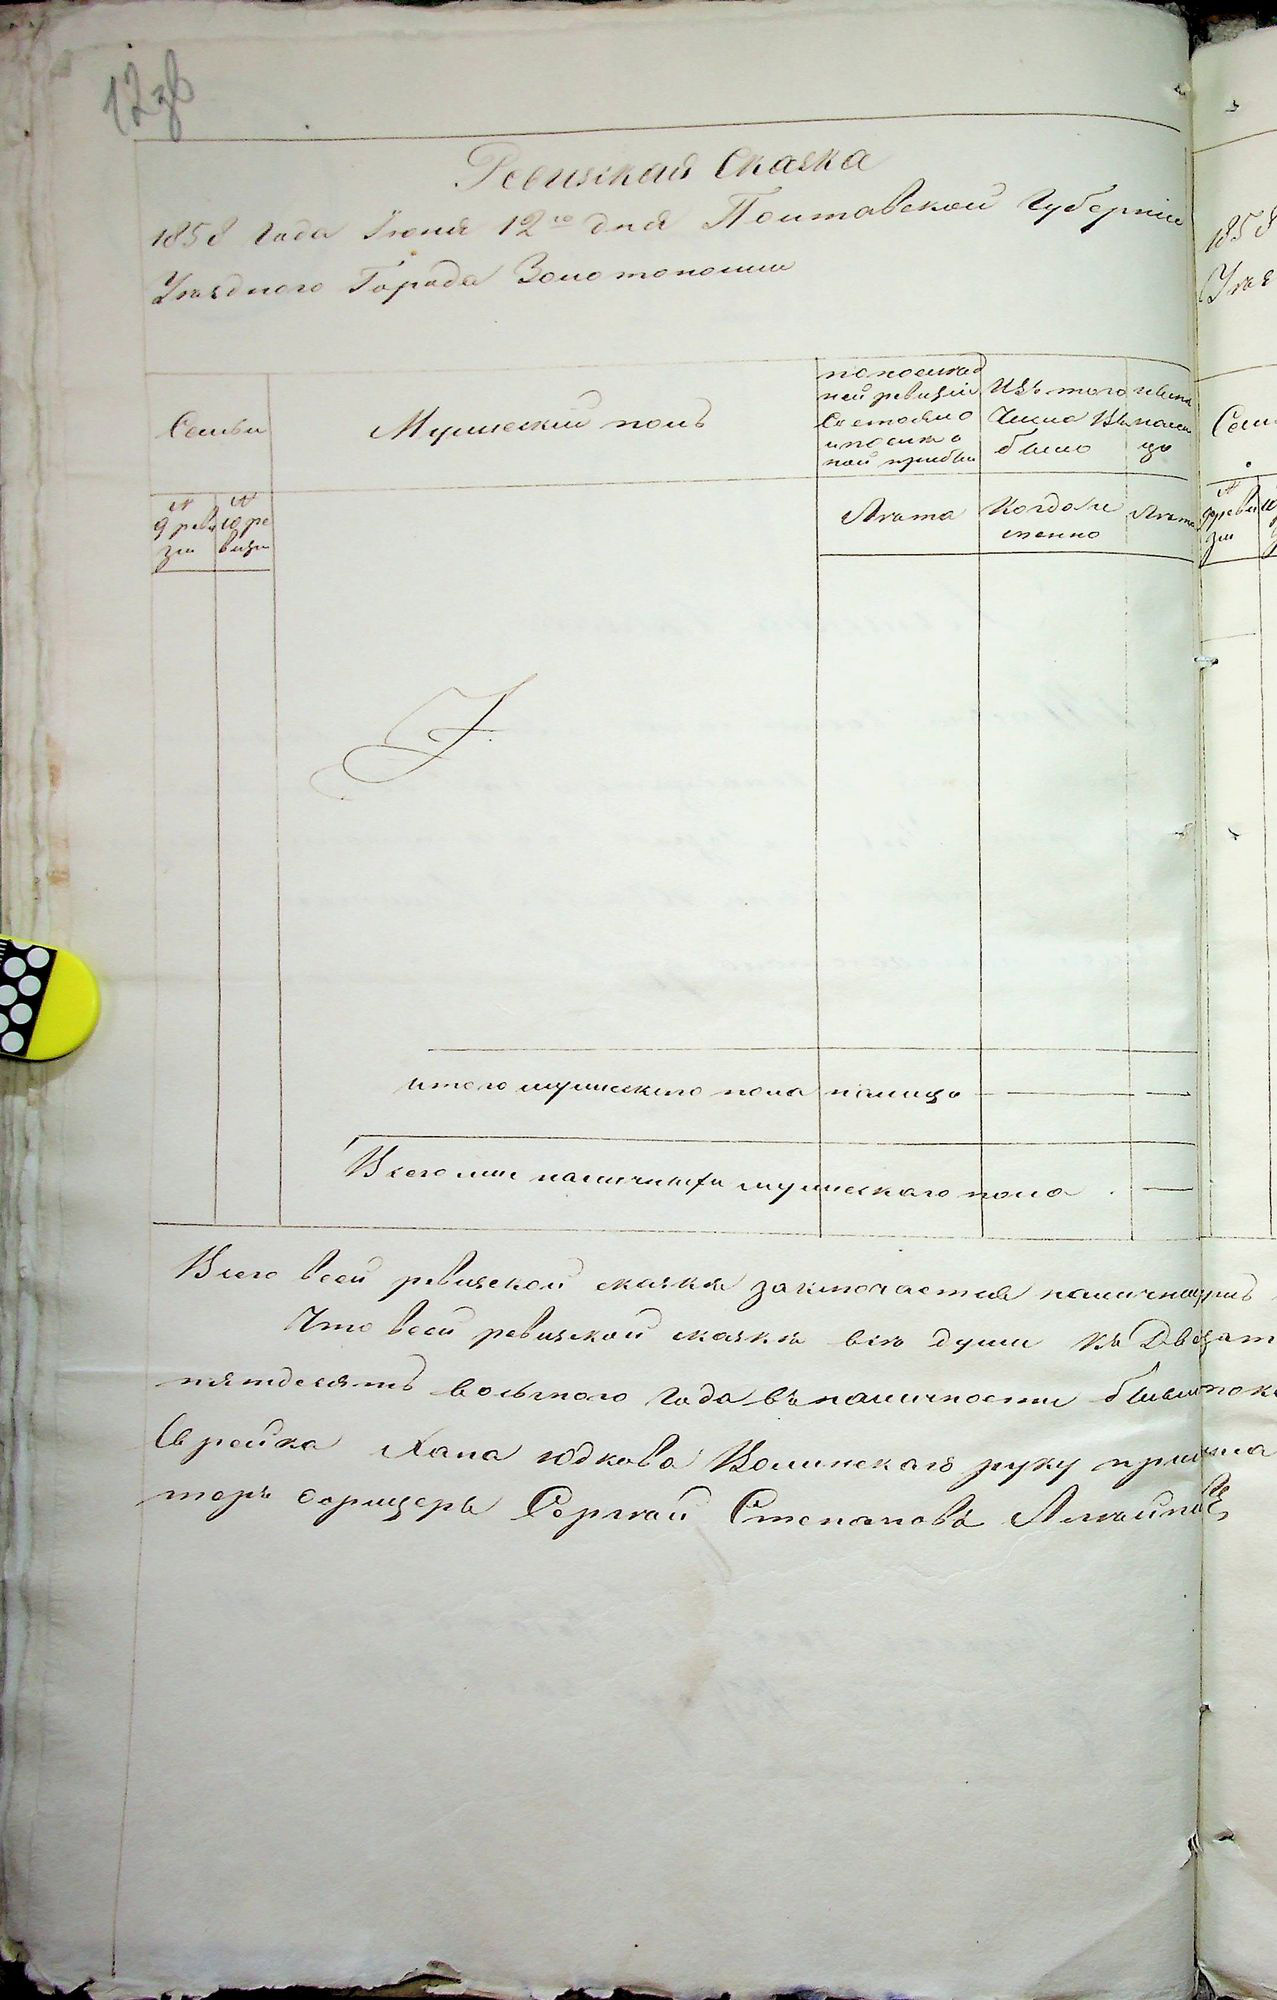 12зв
Ревизская Сказка
1858 Года Іюня 12го дня Полтавской Губерніи
Уезднаго Города Золотоноши
Семьи
Мужескій полъ
по послед
ней ревизіи
Состояло
и после о
ной прибы
Изъ того
Числа Вы
было
ныне
нали
цо
№ 9 реви зіи
№ 10 ре визіи
Лета
Когда и
менно
Лета
итого мужескаго пола налицо
Всего или наличныхъ мужескаго пола
Всего всей ревизской сказке заключается наличных
Что всей ревизской сказке все души къ
пятдесятъ восьмого года въ наличности бывшія
Еврейка Хана Юдкова Волинская руку
Сергей Степановъ
1858
Уез
Сем
9 реви
зіи